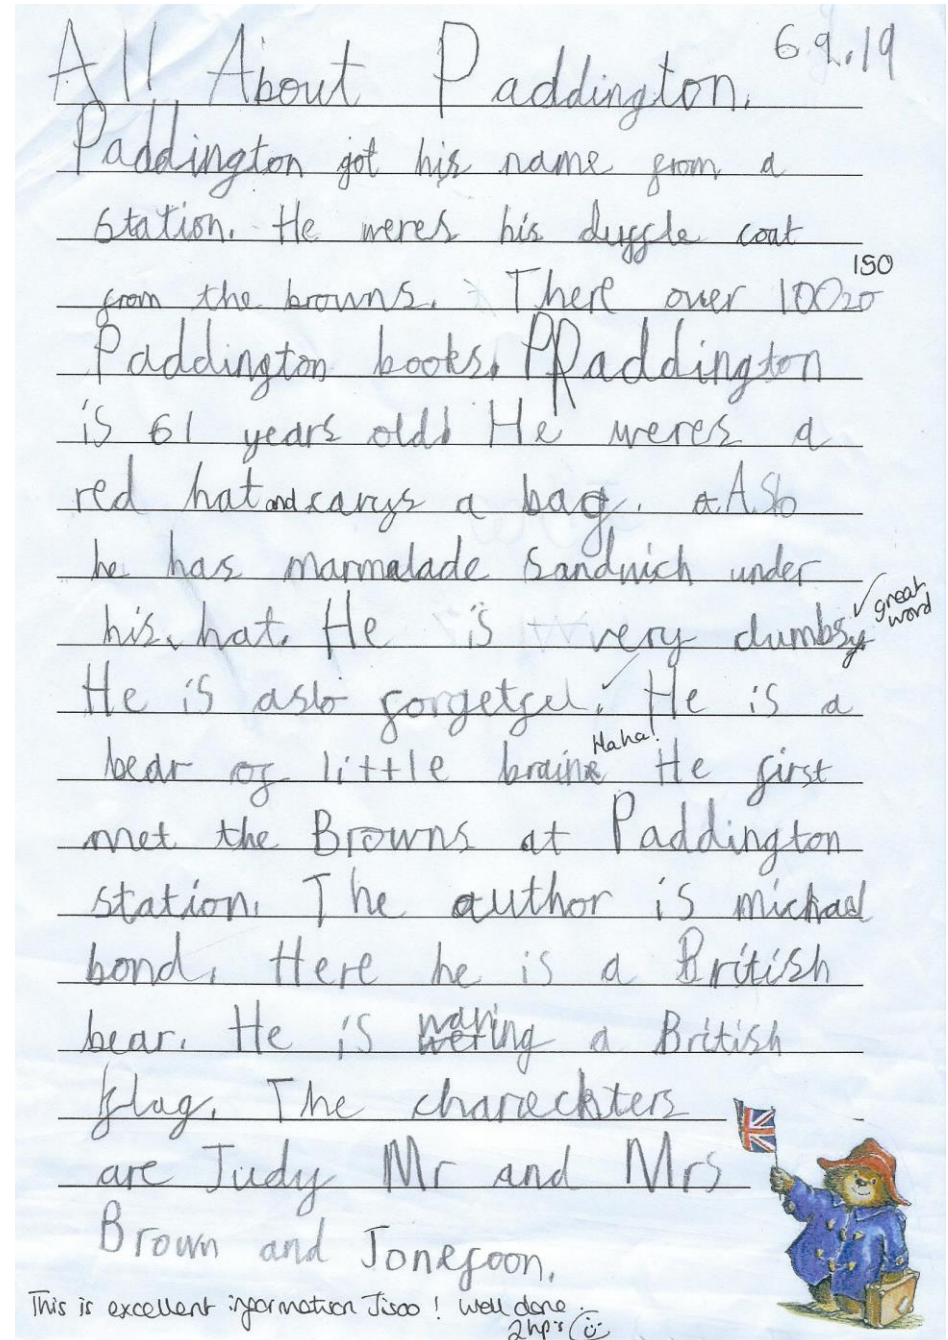 All About Paddington. 6 9.19
Paddington got his name from a
station. He weres his duggle coat
from the browns. There over 150
Paddington books. Paddington
is 61 years old! He weres a
red hat and carys a bag. Aslo
he has marmalade sandwich under
his hat. He is very clumbsy great word
He is aslo forgetful. He is a
bear of little brain Haha! He first
met the Browns at Paddington
station. The author is michael
bond. Here he is a British
bear. He is waving a British
flag. The chareckters
are Judy Mr and Mrs
Brown and
This is excellent information Jisoo! Well done.
2hp's